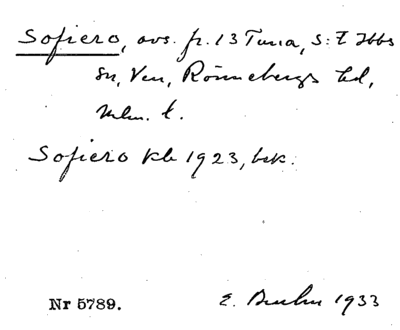 Sofiero, avs. fr. 13 Tuna, S:t Ibbs
sn, Ven, Rönnebergs hd,
Mlm. l.
Sofiero kb 1923, bsk.
Nr 5789.
E. 1933